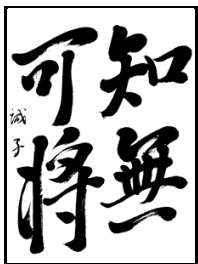 知無
可將
誠子